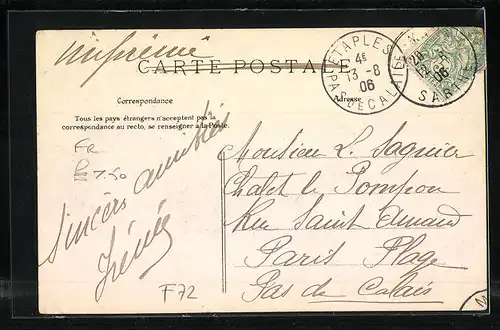 Imprimé
CARTE POSTALE
ETAPLES
4E
13 - 8
06
PAS DE CALAIS
06
SARTHE
Correspondance
Adresse
Tous les pays étrangers n'acceptent pas la
correspondance au recto, se renseigner à la Poste.
Fr
7.50
Sincères amitiés
Irénée
F72
Monsieur L. Sagnier
Chalet le Pompon
Rue Saint Amand
Paris Plage
Pas de Calais